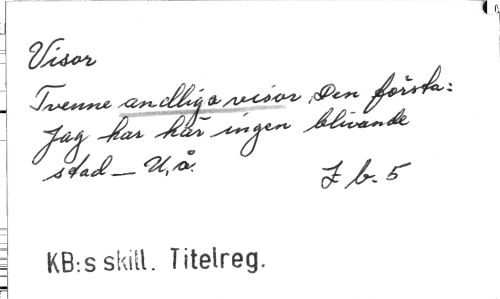 Visor
Tvenne andliga visor, Den första:
Jag har här ingen blivande
stad — U,å.
Z b. 5
KB:s skill. Titelreg.